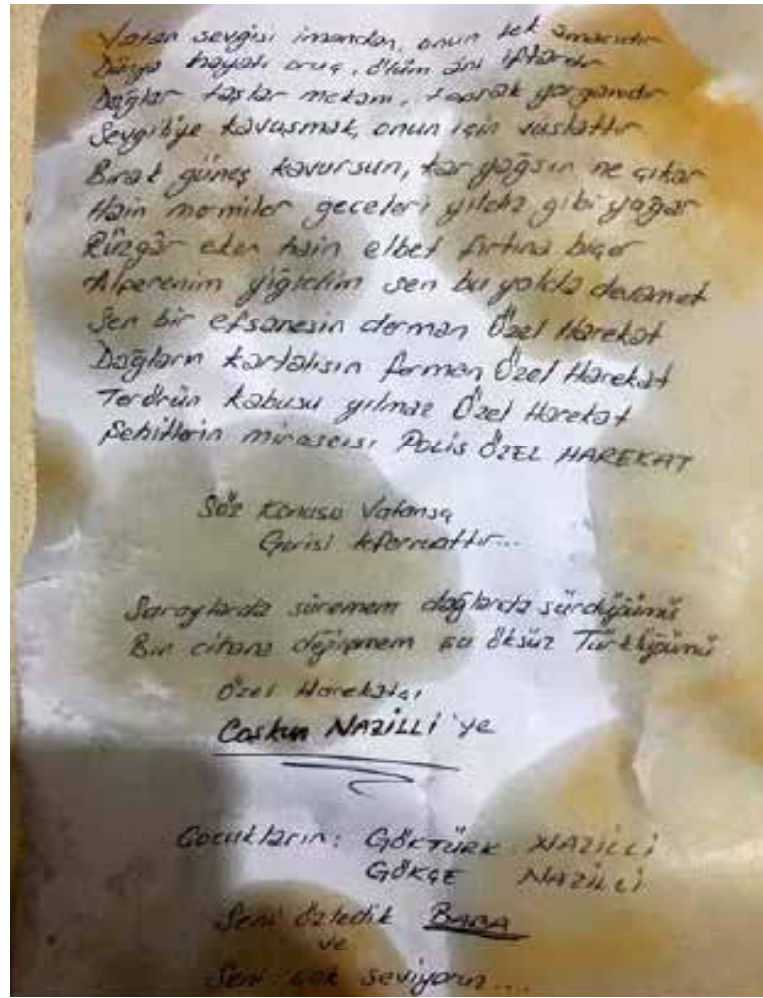 Vatan sevgisi imandan, onun tek amacıdır
Dünya hayatı oruç, ölüm anı iftardır
Dağlar taşlar mekanı, toprak yorganıdır
Sevgiliye kavuşmak, onun için vuslattır
Bırak güneş kavursun, kar yağsın ne çıkar
Hain mermiler geceleri yıldız gibi yağar
Rüzgâr eken hain elbet fırtına biçer
Alperenim yiğidim sen bu yolda devam et
Sen bir efsanesin derman Özel Harekat
Dağların kartalısın ferman Özel Harekat
Terörün kabusu yılmaz Özel Harekat
Şehitlerin mirasçısı Polis ÖZEL HAREKAT
Söz Konusu Vatansa
Gerisi teferruattır...
Saraylarda süremem dağlarda sürdüğümü
Bin cihana değişmem şu öksüz Türklüğümü
Özel Harekatçı
Coşkun NAZİLLİ'ye
Çocukların: GÖKTÜRK NAZİLLİ
GÖKÇE NAZİLLİ
Seni özledik BABA
ve
Seni çok seviyoruz....